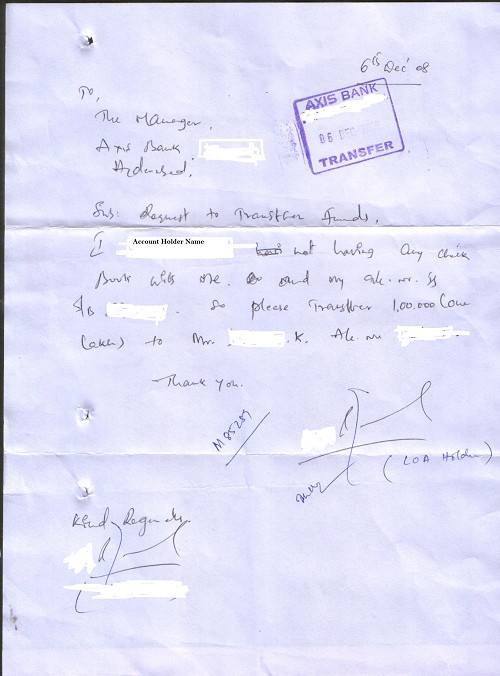 6th Dec' 08
To,
The Manager,
Axis Bank
Hyderabad.
AXIS BANK
06 DEC
TRANSFER
Sub: Request to Transfher funds.
I Account Holder Name not having any check
Book with me. and my a/c. no. is
S/B . So please Transfher 1,00,000 (one
lakh) to Mr. .K. A/c. no
Thank you.
M85289
(LOA Holder)
Kind Regards